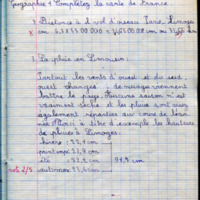 Géographie : Complétez la carte de France.
1. Distance à vol d'oiseau Paris, Limoges
2. La pluie en Limousin:
Partout les vents d'ouest et du sud,
ouest chargés de nuages viennent
battre le pays. Aucune saison n'est
vraiment sèche et les pluies sont assez
également réparties au cours de l'an
née. Voici à titre d'exemple les hauteurs
de pluies à Limoges.
hiver : 22,9 cm
printemps 23,9 cm
été : 22,2 cm 94,9 cm
automne